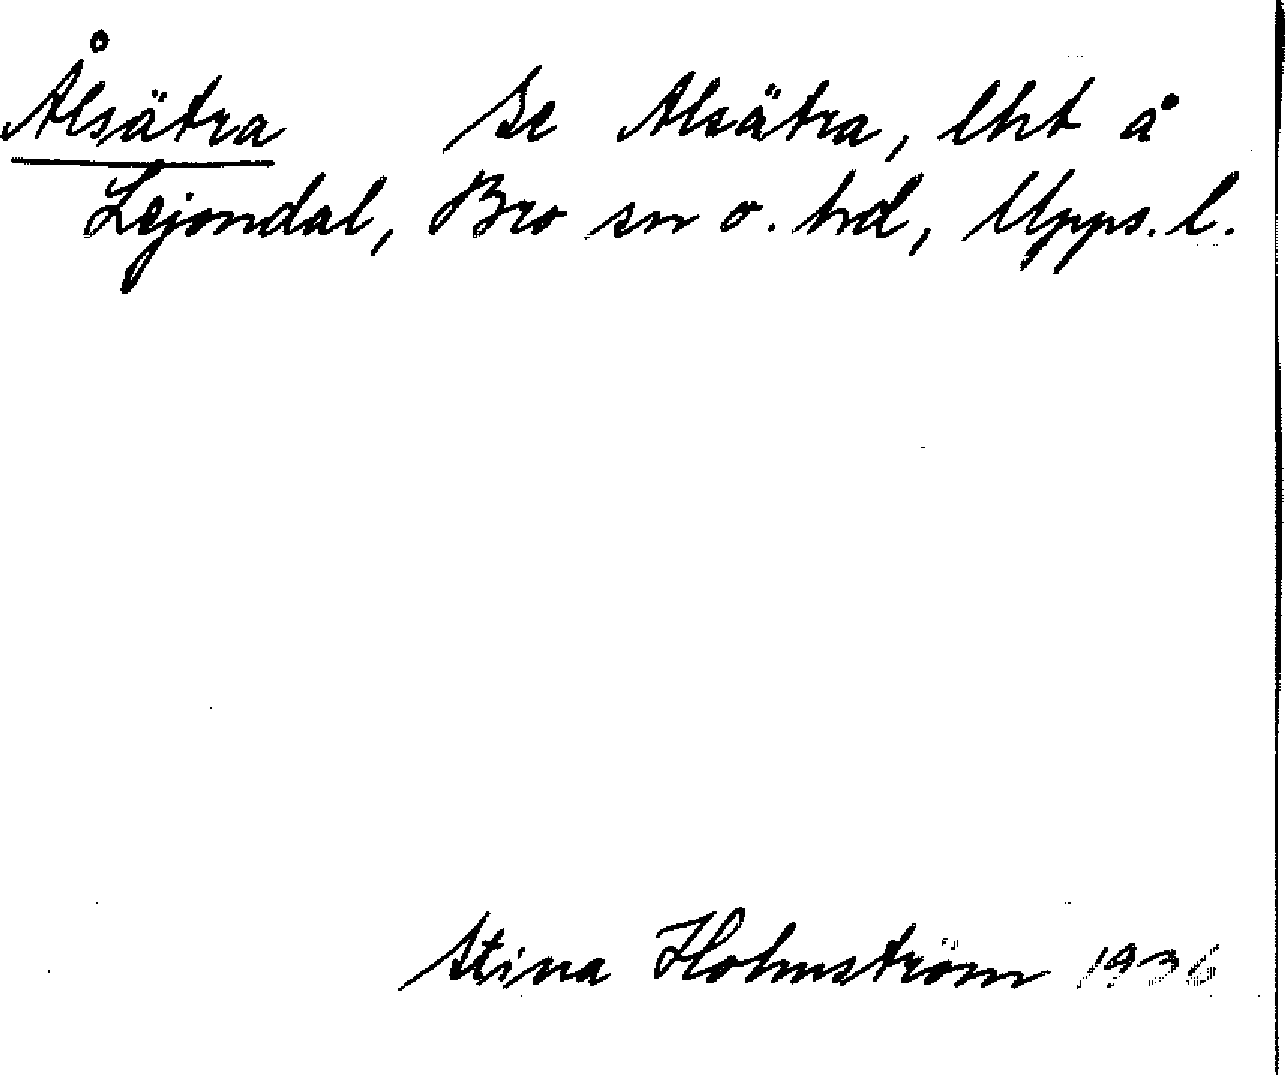 Ålsätra Se Alsätra, lht å
Lejondal, Bro sn o. hd, Upps. l.
Stina Holmström 1936